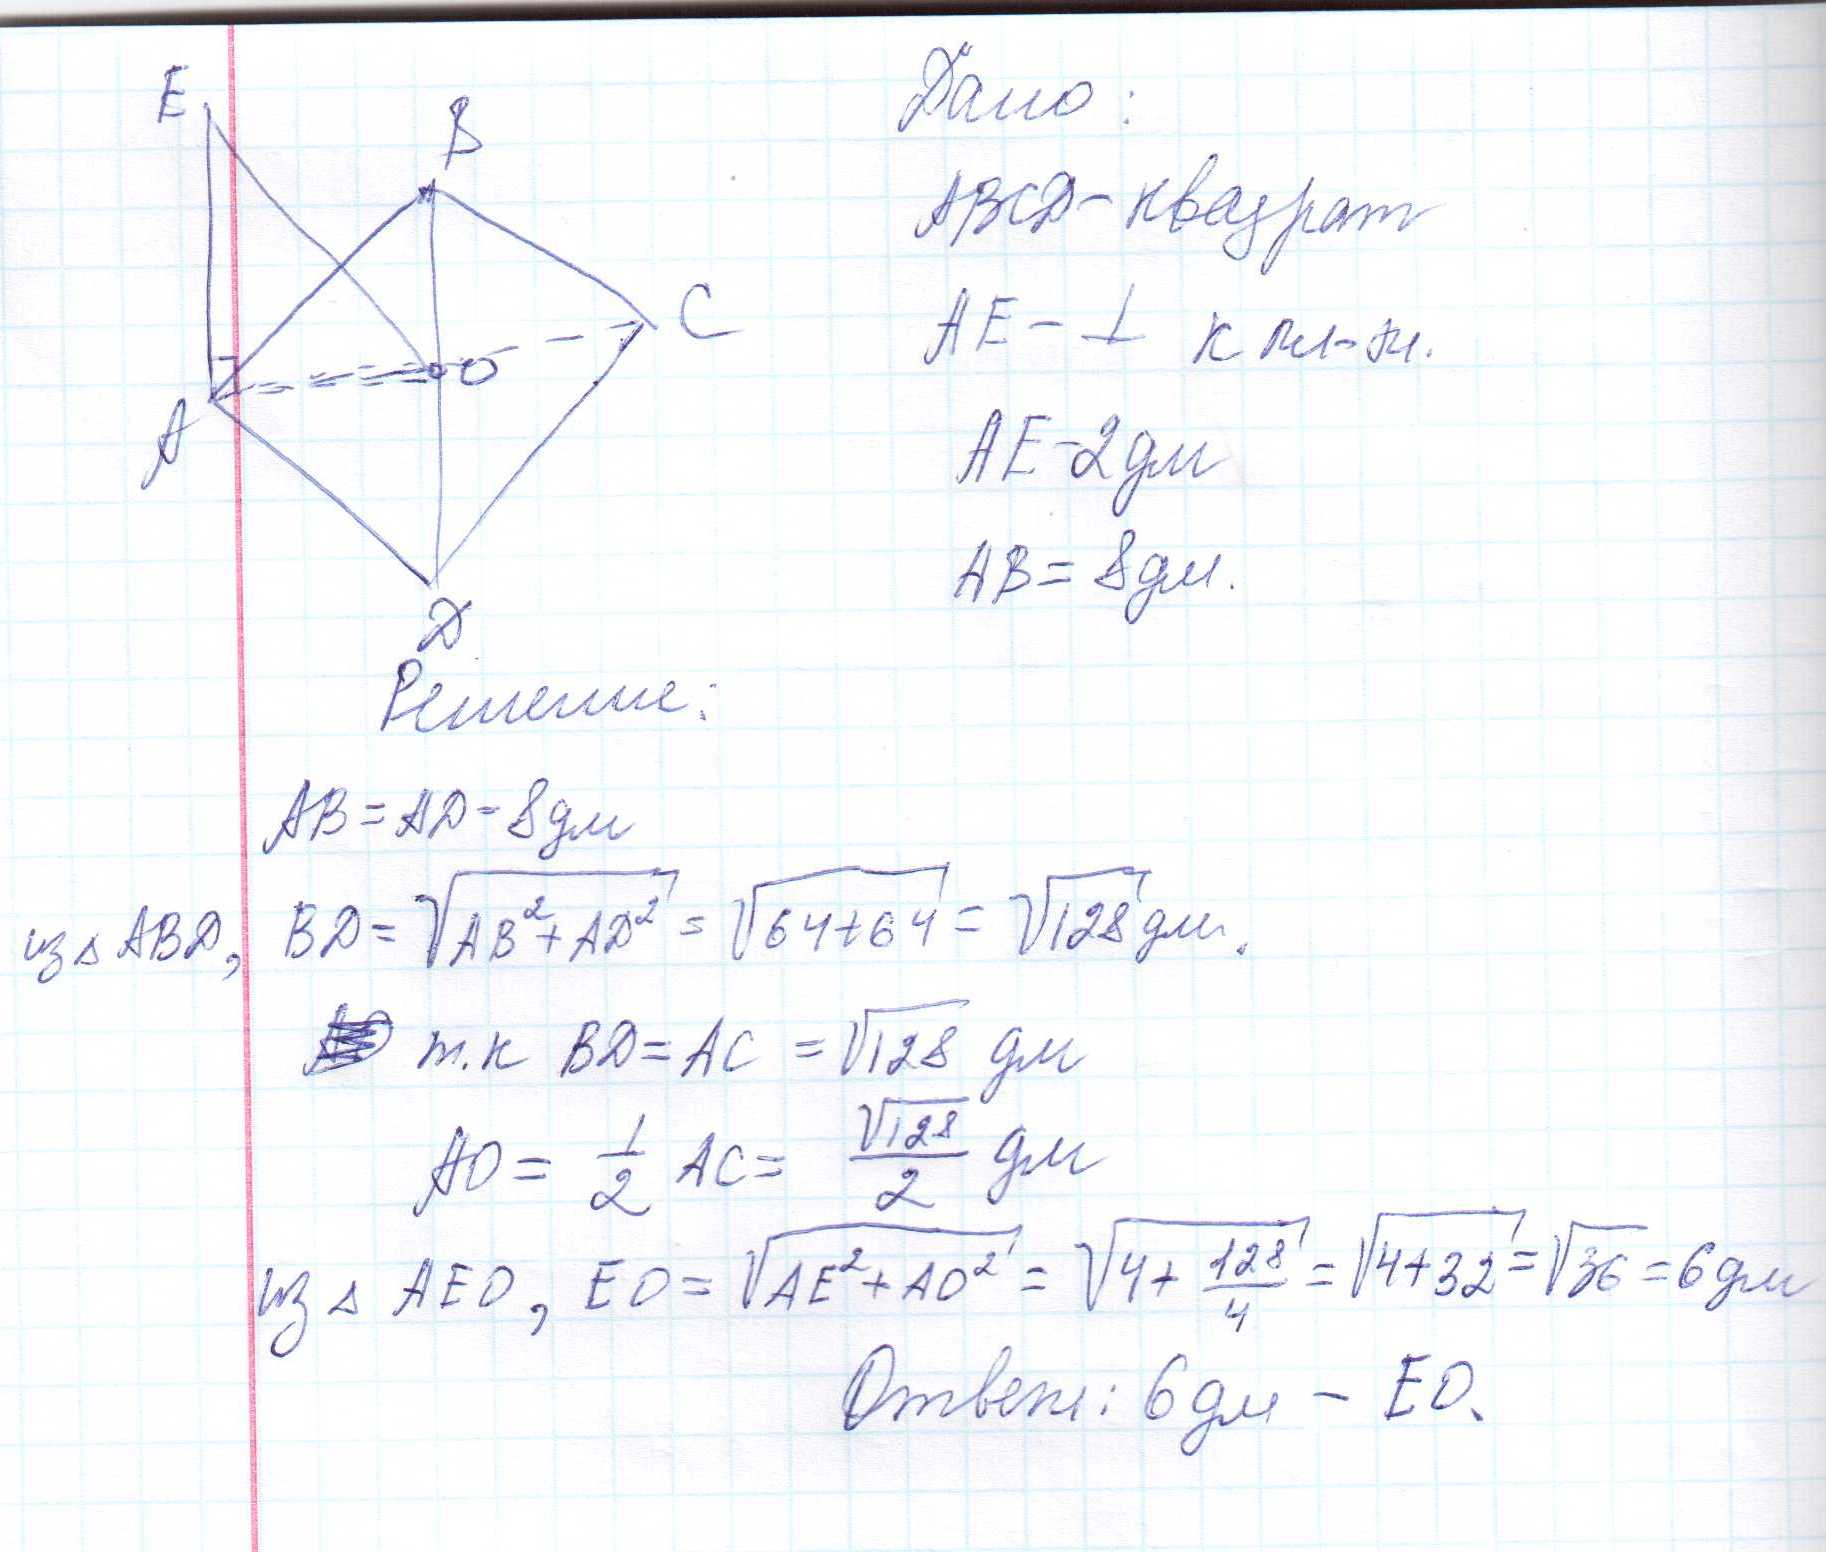 E
B
C
O
A
D
Дано:
ABCD - квадрат
AE - ⊥ к пл-ти.
AE - 2дм
AB = 8дм.
Решение:
AB = AD - 8дм
из △ ABD, BD = √AB²+AD² = √64+64 = √128 дм.
т.к BD = AC = √128 дм
AO = 1/2 AC = √128/2 дм
из △ AEO, EO = √AE²+AO² = √4+128/4 = √4+32 = √36 = 6дм
Ответ: 6дм - EO.